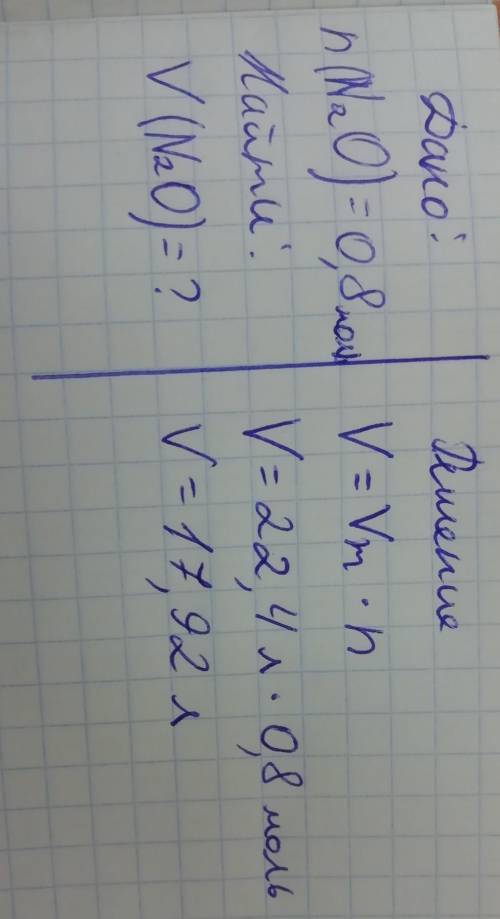 Дано:
n(N₂O) = 0,8 моль
Найти:
V(N₂O) = ?
Решение
V = Vm · n
V = 22,4 л · 0,8 моль
V = 17,92 л